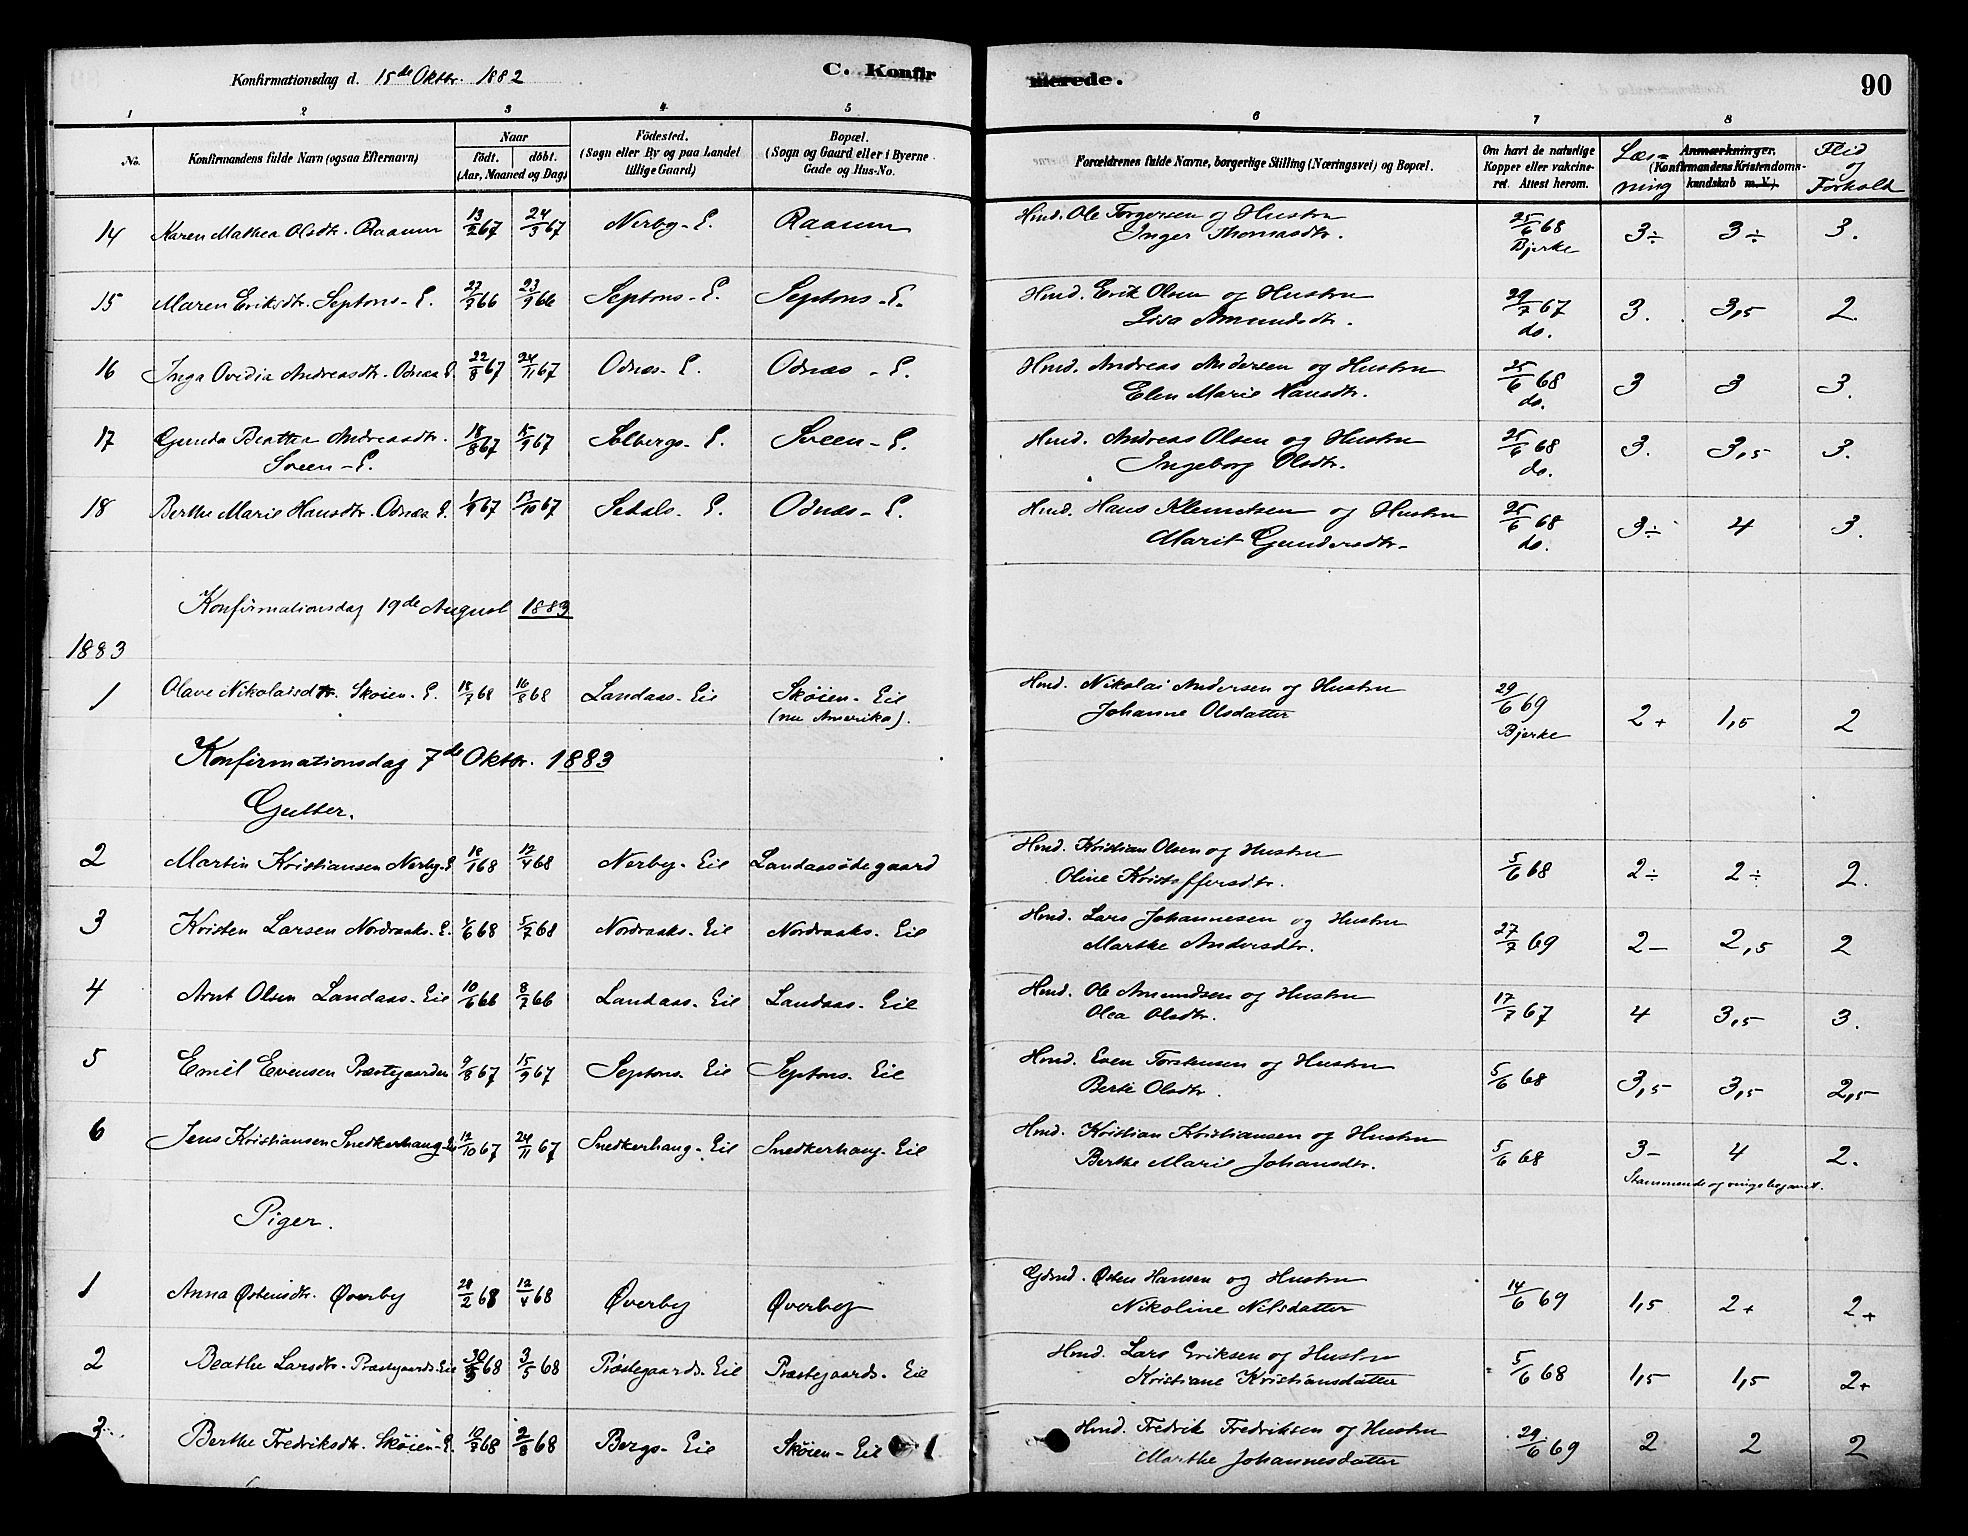 Konfirmationsdag d. 15de Oktbr. 1882 C. Konfirmerede. 90
1 2 3 4 5 6 7 8
No. Konfirmandens fulde Navn (ogsaa Efternavn) Naar født. døbt. (Aar, Maaned og Dag) Födested. (Sogn eller By og paa Landet tillige Gaard) Bopæl. (Sogn og Gaard eller i Byerne Gade og Hus-No. Forældrenes fulde Navne, borgerlige Stilling (Næringsvei) og Bopæl. Om havt de naturlige Kopper eller vakcineret. Attest herom. Læsning Anmærkninger. (Konfirmandens Kristendomskundskab m. V.) Flid og Forhold
14 Karen Mathea Olsdtr. Raaum 13/2 67 24/3 67 Nerby-E. Raaum Hmd. Ole Torgersen og Hustru Inger Thomasdtr. 25/6 68 Bjerke 3÷ 3÷ 3.
15 Maren Eriksdtr. Septons-E. 27/9 66 23/9 66 Septons-E. Septons-E. Hmd. Erik Olsen og Hustru Lisa Amundsdtr. 29/7 67 do. 3. 3,5 2.
16 Inga Ovedia Andreasdtr. Odnæs E. 22/8 67 24/11 67 Odnæs-E. Odnæs-E. Hmd. Andreas Andersen og Hustru Elen Marie Hansdtr. 25/6 68 do. 3 3 3.
17 Gunda Beathea Andreasdtr. Sveen-E. 18/8 67 15/9 67 Solbergs-E. Sveen-E. Hmd. Andreas Olsen og Hustru Ingeborg Olsdtr. 25/6 68 do. 3. 3,5 3.
18 Berthe Marie Hansdtr. Odnæs E. 1/9 67 13/10 67 Setals-E. Odnæs-E. Hmd. Hans Klemetsen og Hustru Marit Gundersdtr. 25/6 68 do. 3÷ 4 3.
Konfirmationsdag 19de August 1883
1883
1 Olave Nikolaisdtr. Skøien-E. 18/7 68 16/8 68 Landaas-Eie Skøien-Eie (nu Amerika). Hmd. Nikolai Andersen og Hustru Johanne Olsdatter 29/6 69 Bjerke 2+ 1,5 2
Konfirmationsdag 7de Oktbr. 1883
Gutter.
2 Martin Kristiansen Nerby-E 18/1 68 12/4 68 Nerby-Eie Landaasødegaard Hmd. Kristian Olsen og Hustru Oline Kristoffersdtr. 5/6 68 2÷ 2÷ 2.
3 Kristen Larsen Nordraaks-E. 4/6 68 5/7 68 Nordraaks-Eie Nordraaks-Eie Hmd. Lars Johannesen og Hustru Marthe Andersdtr. 27/7 69 2- 2,5 2
4 Arnt Olsen Landaas-Eie 10/6 66 8/7 66 Landaas-Eie Landaas-Eie Hmd. Ole Amundsen og Hustru Olea Olsdtr. 17/7 67 4 3,5 3.
5 Emil Evensen Præstegaarden 9/8 67 15/9 67 Septons-Eie Septons-Eie Hmd. Even Torstensen og Hustru Berte Olsdtr. 5/6 68 3,5 3,5 2,5
6 Jens Kristiansen Snedkerhaug-E. 12/10 67 24/11 67 Snedkerhaug-Eie Snedkerhaug-Eie Hmd. Kristian Kristiansen og Hustru Berthe Marie Johansdtr. 5/6 68 3- 4 2.
Stammende og ringe begavet.
Piger.
1 Anna Østensdtr. Øverby 28/2 68 12/4 68 Øverby Øverby Gdmd. Østen Hansen og Hustru Nikoline Nilsdatter 14/6 69 1,5 2+ 2+
2 Beathe Larsdtr. Præstegaards-Eie 30/3 68 3/5 68 Præstegaards-Eie Præstegaards-Eie Hmd. Lars Eriksen og Hustru Kristiane Kristiansdatter 5/6 68 1,5 1,5 2+
3 Berthe Fredriksdtr. Skøien-E. 10/7 68 2/8 68 Bergs-Eie Skøien-Eie Hmd. Fredrik Fredriksen og Hustru Marthe Johannesdatter 29/6 69 2 2 2